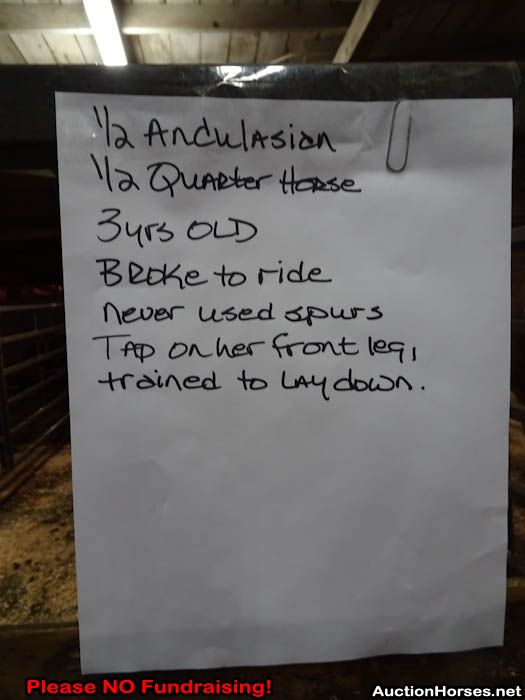 1/2 Andulasian
1/2 Quarter Horse
3 yrs OLD
Broke to ride
never used spurs
Tap on her front leg,
trained to Lay down.
Please NO Fundraising!
AuctionHorses.net